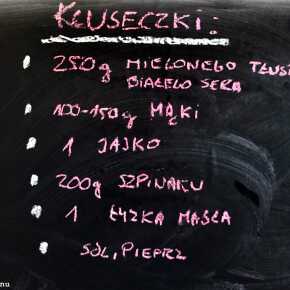 KLUSECZKI:
250g MIELONEGO TŁUS
BIAŁEGO SERA
100-150g MĄKI
1 JAJKO
200g SZPINAKU
1 ŁYŻKA MASŁA
SÓL, PIEPRZ
nu